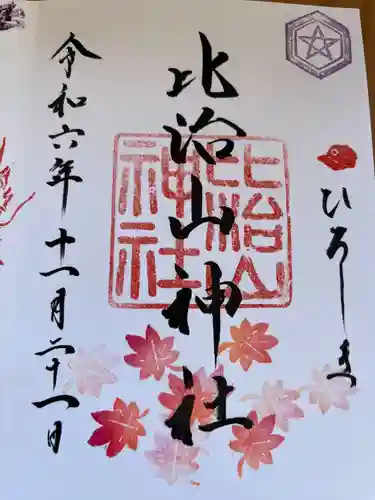 ひろしま
比治山神社
比治山
神社
令和六年十一月二十一日